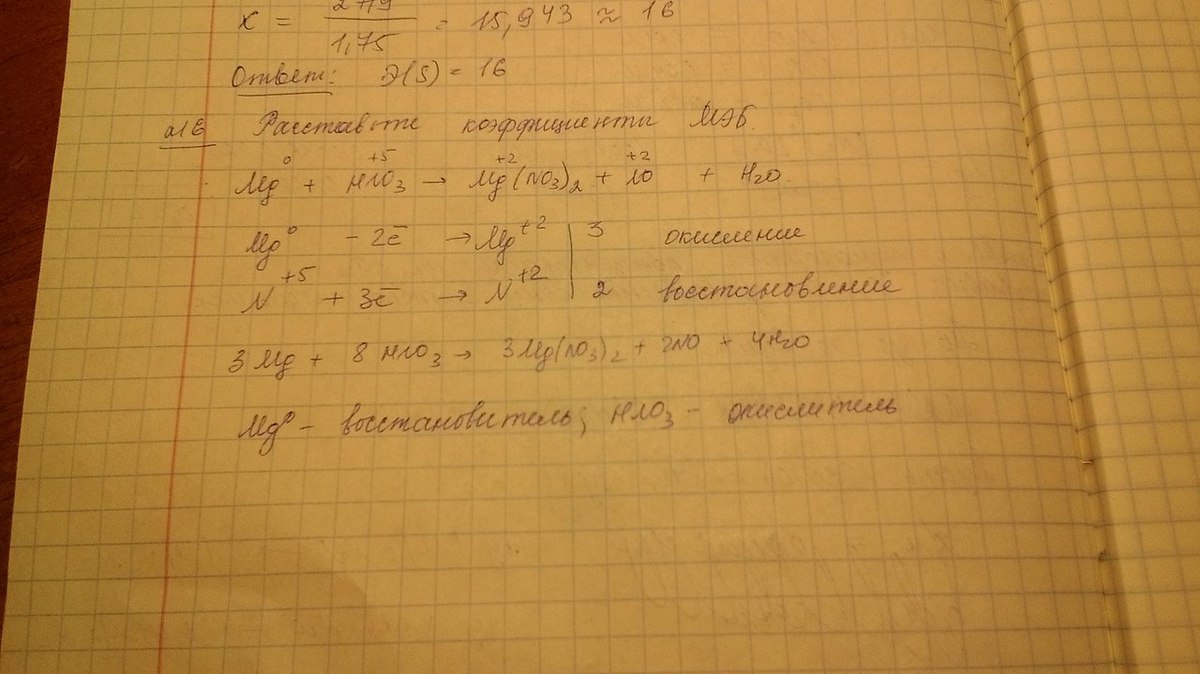 x = 279/1,75 = 15,943 ≈ 16
Ответ: Э(S) = 16
Расставьте коэффициенты МЭБ.
Mg⁰ + HN⁺⁵O₃ → Mg⁺²(NO₃)₂ + N⁺²O + H₂O
Mg⁰ - 2ē → Mg⁺² | 3 окисление
N⁺⁵ + 3ē → N⁺² | 2 восстановление
3Mg + 8HNO₃ → 3Mg(NO₃)₂ + 2NO + 4H₂O
Mg⁰ - восстановитель; HNO₃ - окислитель